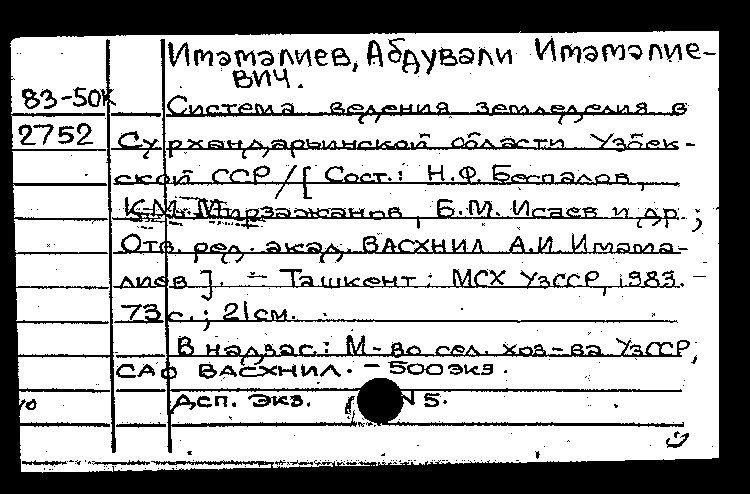 Имамалиев, Абдували Имамалие-
вич.
83-50К
Система ведения земледелия в
2752
Сурхандарьинской области Узбек-
ской ССР / [ Сост.: Н.Ф. Беспалов,
К.М. Мирзажанов, Б.М. Исаев и др.;
Отв. ред. акад. ВАСХНИЛ А.И. Имама-
лиев ]. – Ташкент: МСХ УзССР, 1983. –
73 с.; 21 см.
В надзаг.: М-во сел. хоз-ва УзССР,
САО ВАСХНИЛ. – 500 экз.
Дсп. Экз. N 5.